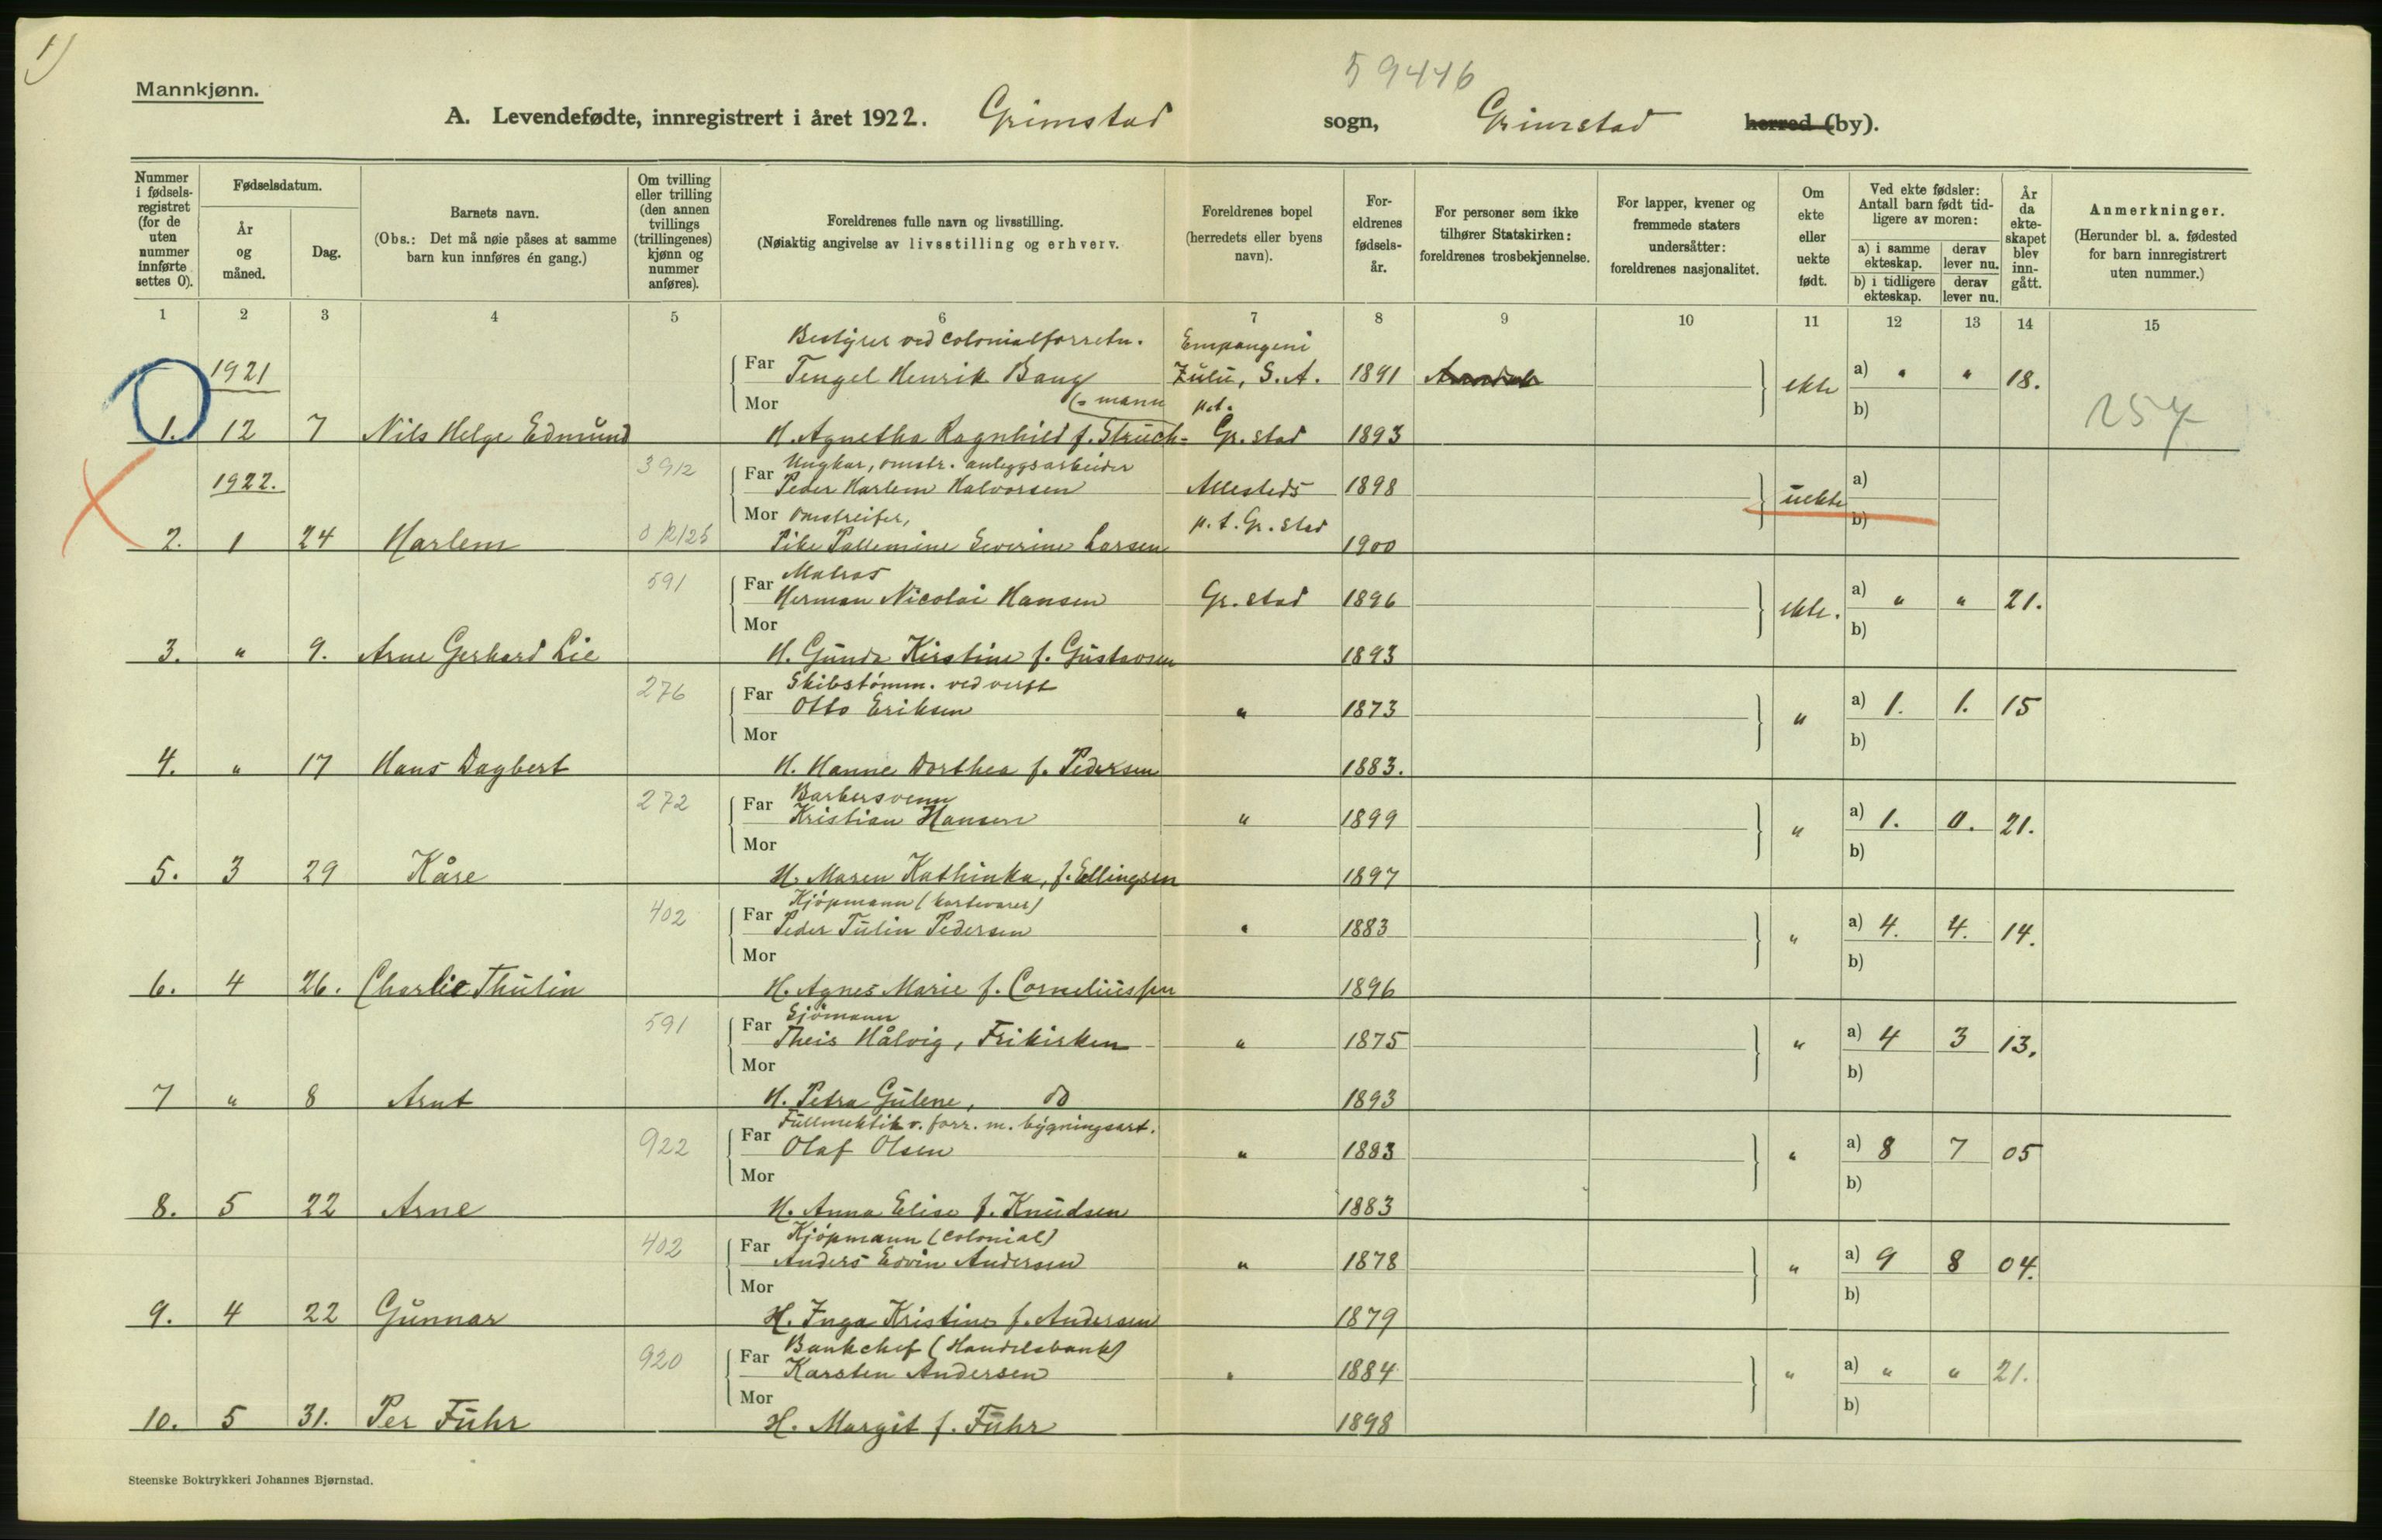 1)
59446
Mannkjønn.
A. Levendefødte, innregistrert i året 1922. Grimstad sogn, Grimstad herred (by).
Nummer i fødselsregistret (for de uten nummer innførte settes 0).
Fødselsdatum.
År og måned.
Dag.
Barnets navn.
(Obs.: Det må nøie påses at samme barn kun innføres én gang.)
Om tvilling eller trilling (den annen tvillings (trillingenes) kjønn og nummer anføres).
Foreldrenes fulle navn og livsstilling.
(Nøiaktig angivelse av livsstilling og erhverv.
Foreldrenes bopel (herredets eller byens navn).
Foreldrenes fødselsår.
For personer som ikke tilhører Statskirken: foreldrenes trosbekjennelse.
For lapper, kvener og fremmede staters undersåtter: foreldrenes nasjonalitet.
Om ekte eller uekte født.
Ved ekte fødsler: Antall barn født tidligere av moren:
a) i samme ekteskap. derav lever nu.
b) i tidligere ekteskap. derav lever nu.
År da ekteskapet blev inngått.
Anmerkninger.
(Herunder bl. a. fødested for barn innregistrert uten nummer.)
1 2 3 4 5 6 7 8 9 10 11 12 13 14 15
Bestyrer ved colonialforretn. Empangeni
1921 Far Tengel Henrik Bang Zulu, S.A. 1891 ekte a) " " 18.
Mor (=mann p.t. b) 257
1. 12 7 Nils Helge Edmund H. Agnetha Ragnhild f. Struck- Gr.stad 1893
3912 Ungkar, omstr. anleggsarbeider
1922. Far Peder Harlem Halvorsen Allesteds 1898 uekte a)
Mor Omstreifer, p.t. Gr.stad b)
2. 1 24 Harlem Pike Pallemine Severine Larsen 1900
591 Matros
Far Herman Nicolai Hansen Gr.stad 1896 ekte. a) " " 21.
Mor b)
3. " 9. Arne Gerhard Lie H. Gunda Kirstine f. Gustavsen 1893
276 Skibstømm. ved verft
Far Otto Eriksen " 1873 " a) 1. 1. 15
Mor b)
4. " 17 Hans Dagbert H. Hanne Dorthea f. Pedersen 1883.
272 Barbersvenn
Far Kristian Hansen " 1899 " a) 1. 0. 21.
Mor b)
5. 3 29 Kåre H. Maren Kathinka, f. Ellingsen 1897
402 Kjøpmann (kortevarer)
Far Peder Tulin Pedersen " 1883 " a) 4. 4. 14.
Mor b)
6. 4 26. Charlie Thulin H. Agnes Marie f. Corneliussen 1896
591 Sjømann
Far Theis Hålvig, Frikirken " 1875 " a) 4 3 13.
Mor b)
7 " 8 Arnt H. Petra Gulene, do 1893
922 Fullmektik v. forr. m. bygningsart.
Far Olaf Olsen " 1883 " a) 8 7 05
Mor b)
8. 5 22 Arne H. Anna Elise f. Knudsen 1883
402 Kjøpmann (colonial)
Far Anders Edvin Andersen " 1878 " a) 9 8 04.
Mor b)
9. 4 22 Gunnar H. Inga Kristine f. Andersen 1879
920 Bankchef (Handelsbank)
Far Karsten Andersen " 1884 " a) " " 21.
Mor b)
10. 5 31. Per Fuhr H. Margit f. Fuhr 1898
Steenske Boktrykkeri Johannes Bjørnstad.